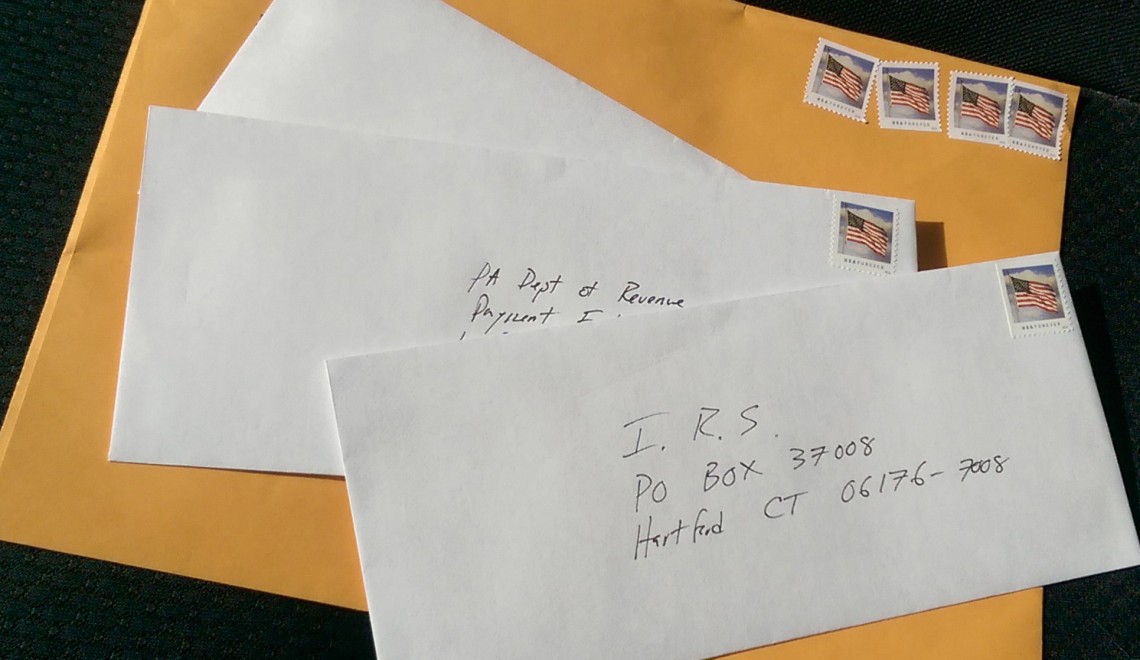 PA Dept of Revenue
Payment I
I. R. S.
PO BOX 37008
Hartford CT 06176-7008
USA FOREVER
USA FOREVER
USA FOREVER
USA FOREVER
USA FOREVER
USA FOREVER